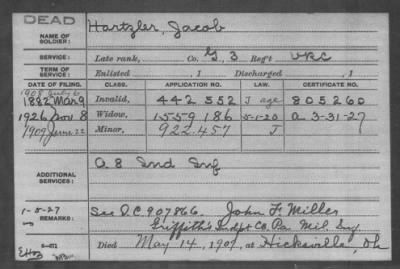 DEAD
NAME OF SOLDIER: Hartzler, Jacob
SERVICE: Late rank, Co. G, 3 Reg't VRC
TERM OF SERVICE: Enlisted , 1 Discharged , 1
DATE OF FILING. CLASS. APPLICATION NO. LAW. CERTIFICATE NO.
1908 July 6
1882 Mar 9 Invalid, 442 552 J age 805260
1926 Nov 8 Widow, 1559 186 5-1-20 a 3-31-27
1909 June 22 Minor, 922.457 J
ADDITIONAL SERVICES: A 8 Ind Inf
1-5-27
REMARKS: See O.C. 907866. John F. Miller
Griffith's Indpt Co. Pa. Mil. Inf
Died May 14, 1909, at Hicksville, Oh